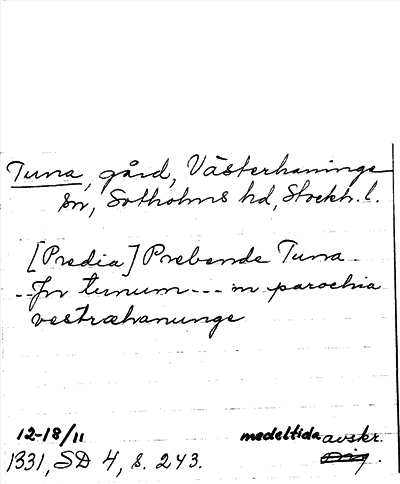 Tuna, gård, Västerhaninge
sn, Sotholms hd, Stockh. l.
[Predia] Prebende Tuna -
--Jn tunum --- in parochia
vestræhanunge
12-18/11 medeltida avskr.
1331, SD 4, s. 243. Orig.